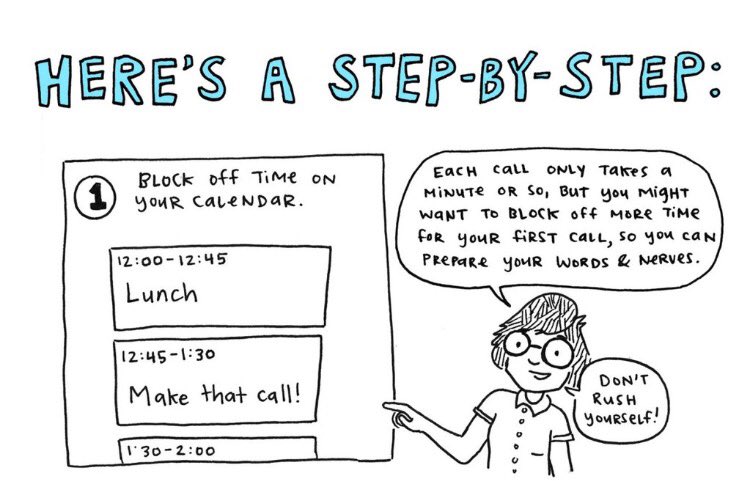 HERE'S A STEP-BY-STEP:
1
BLOCK OFF TIME ON
YOUR CALENDAR.
12:00-12:45
Lunch
12:45-1:30
Make that call!
1:30-2:00
EACH CALL ONLY TAKES A
MINUTE OR SO, BUT YOU MIGHT
WANT TO BLOCK OFF MORE TIME
FOR YOUR FIRST CALL, SO YOU CAN
PREPARE YOUR WORDS & NERVES.
DON'T
RUSH
YOURSELF!